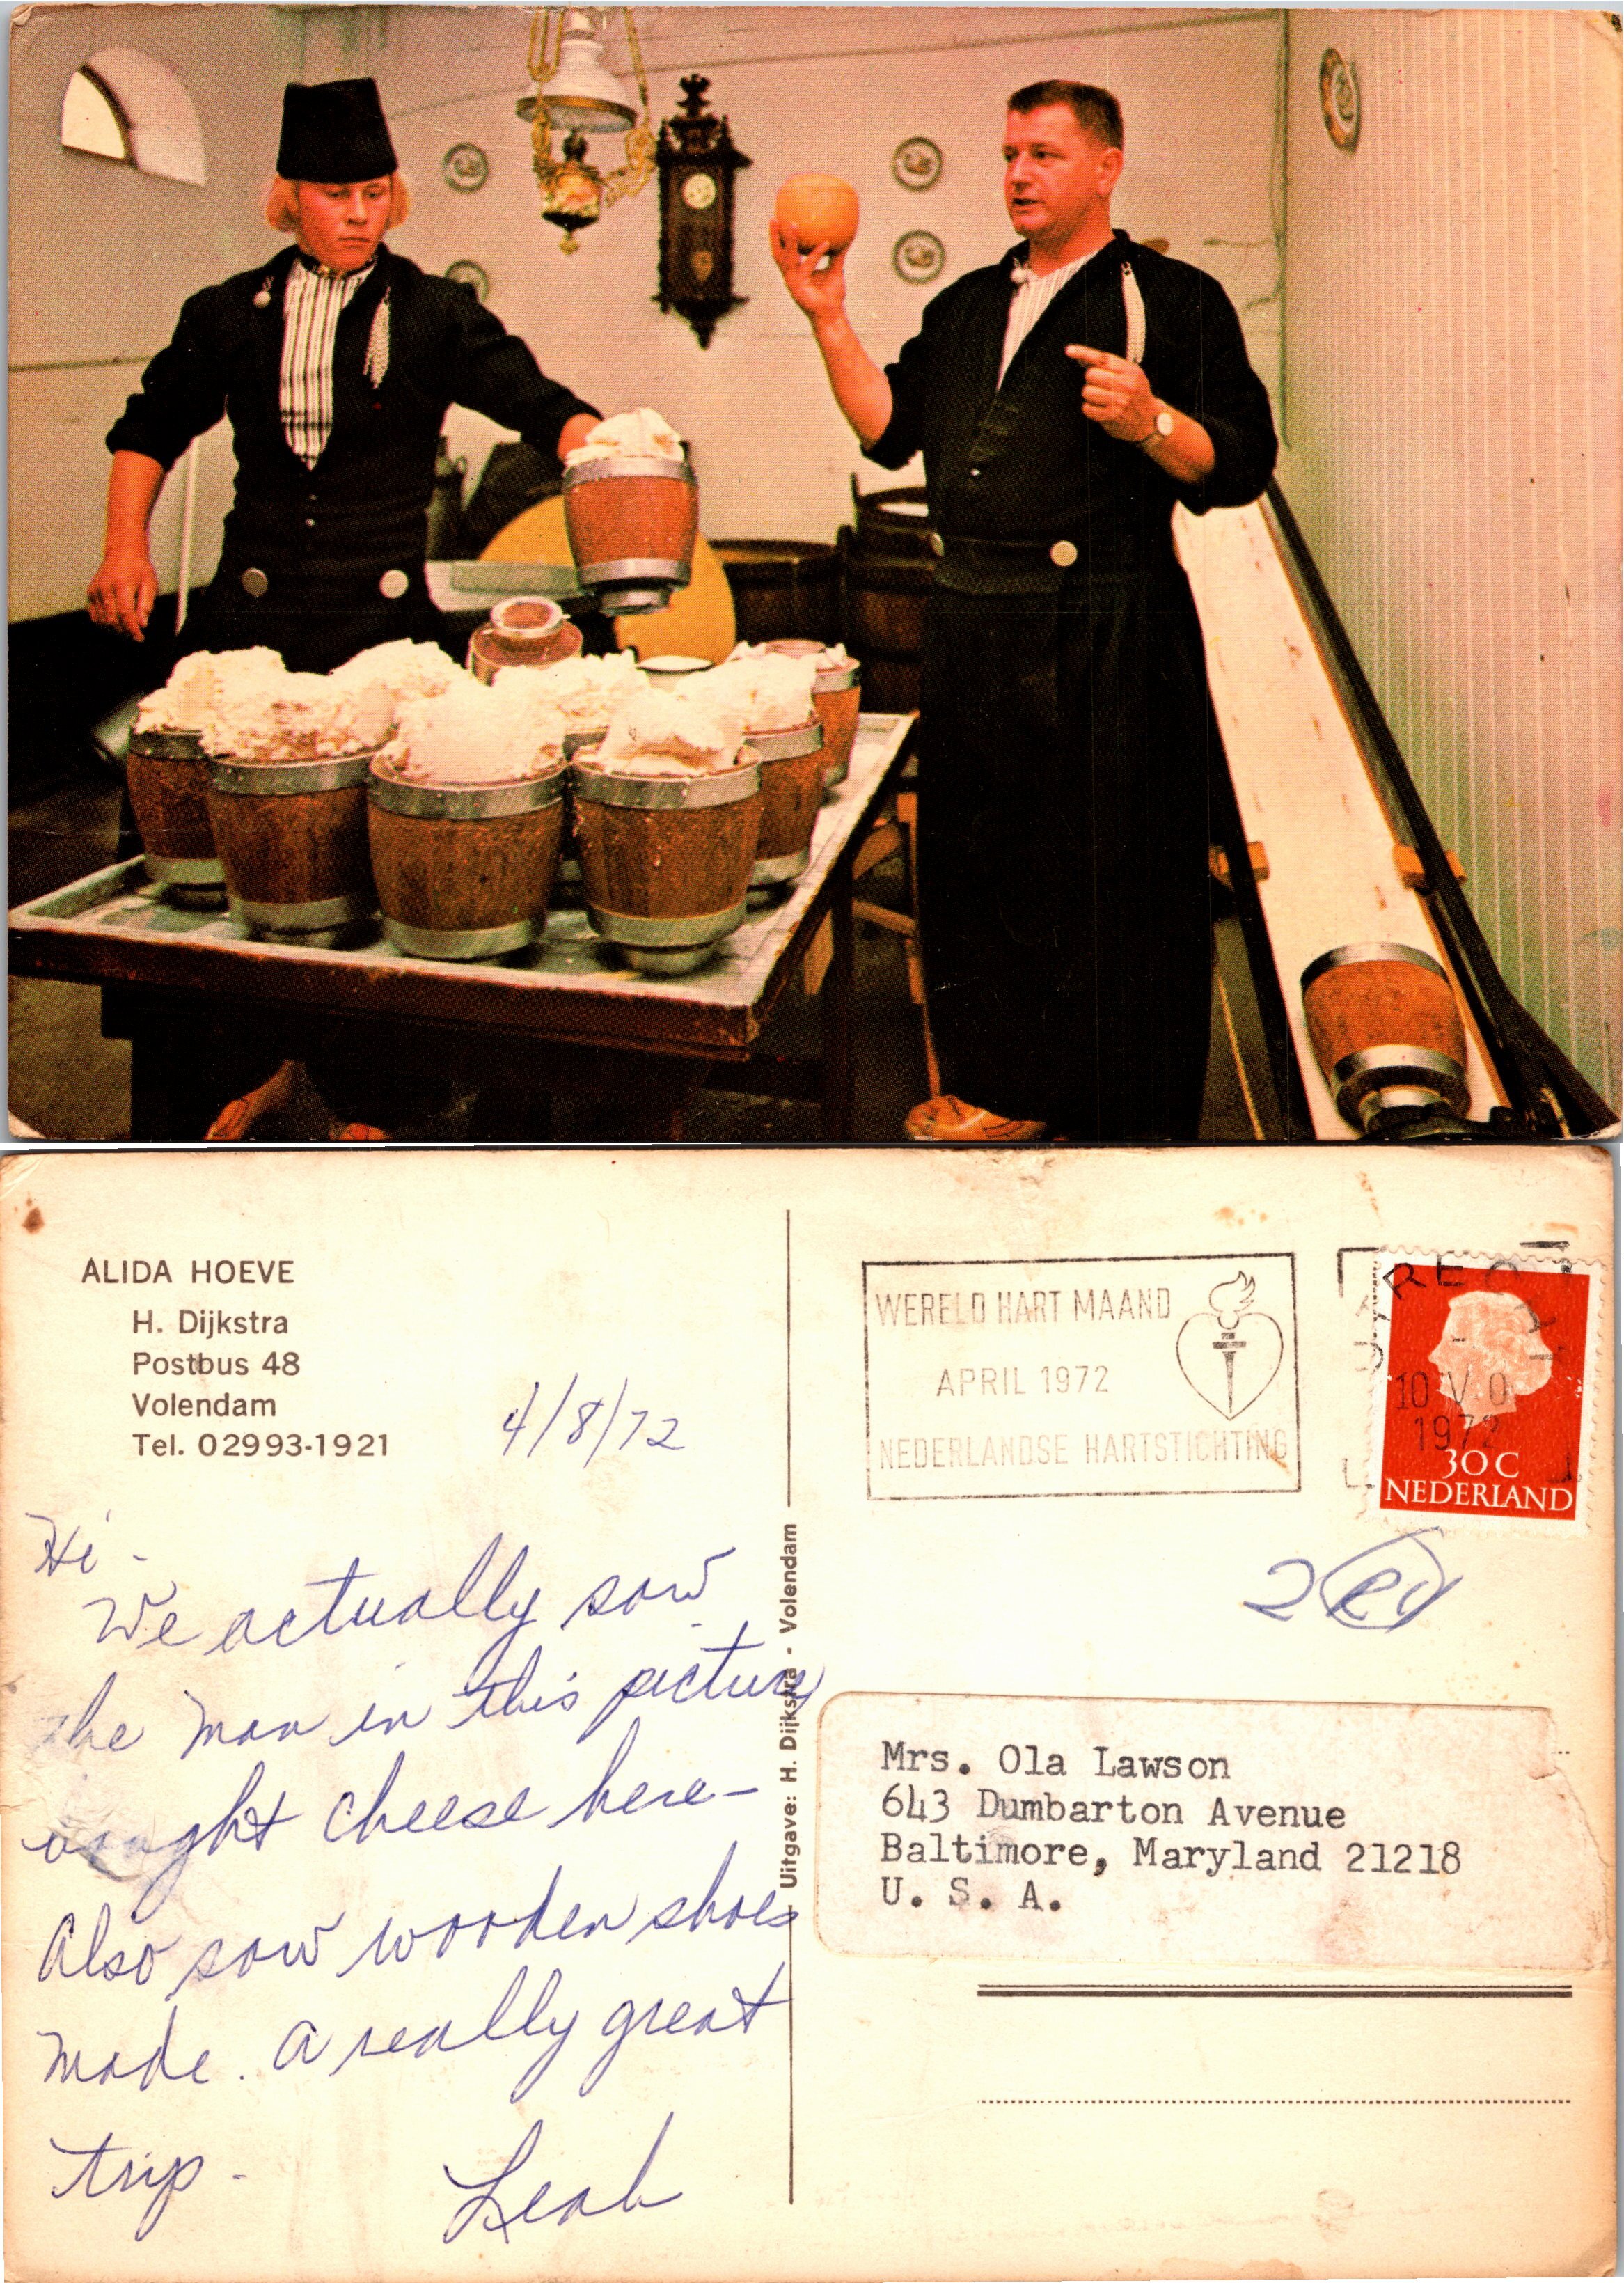 ALIDA HOEVE
H. Dijkstra
Postbus 48
Volendam
Tel. 02993-1921
4/8/72
Hi -
We actually saw
the man in this picture
bought cheese here -
Also saw wooden shoes
made. A really great
trip -
Leah
Uitgave: H. Dijkstra - Volendam
WERELD HART MAAND
APRIL 1972
NEDERLANDSE HARTSTICHTING
10 V 0
1972
30 C
NEDERLAND
Mrs. Ola Lawson
643 Dumbarton Avenue
Baltimore, Maryland 21218
U. S. A.